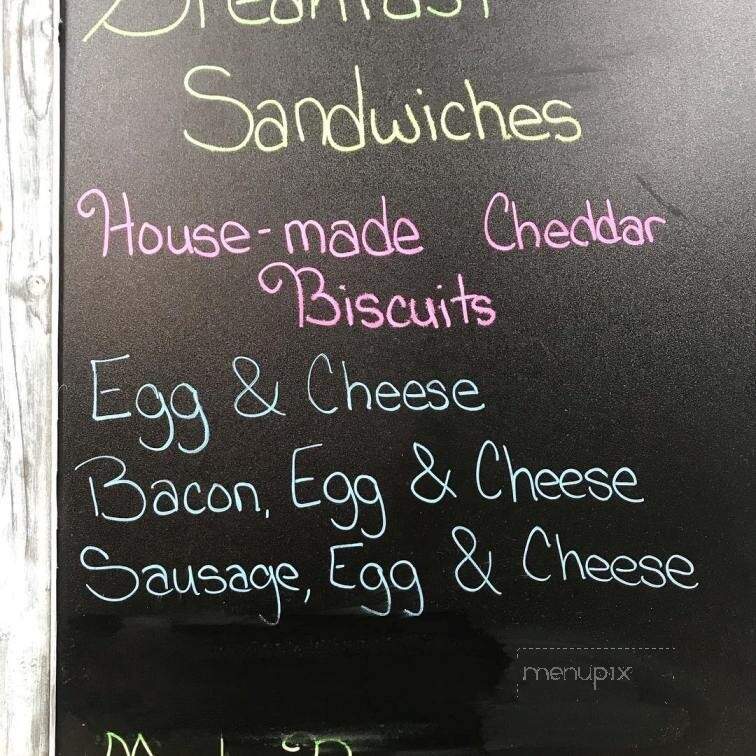 Breakfast
Sandwiches
House-made Cheddar
Biscuits
Egg & Cheese
Bacon, Egg & Cheese
Sausage, Egg & Cheese
menupix